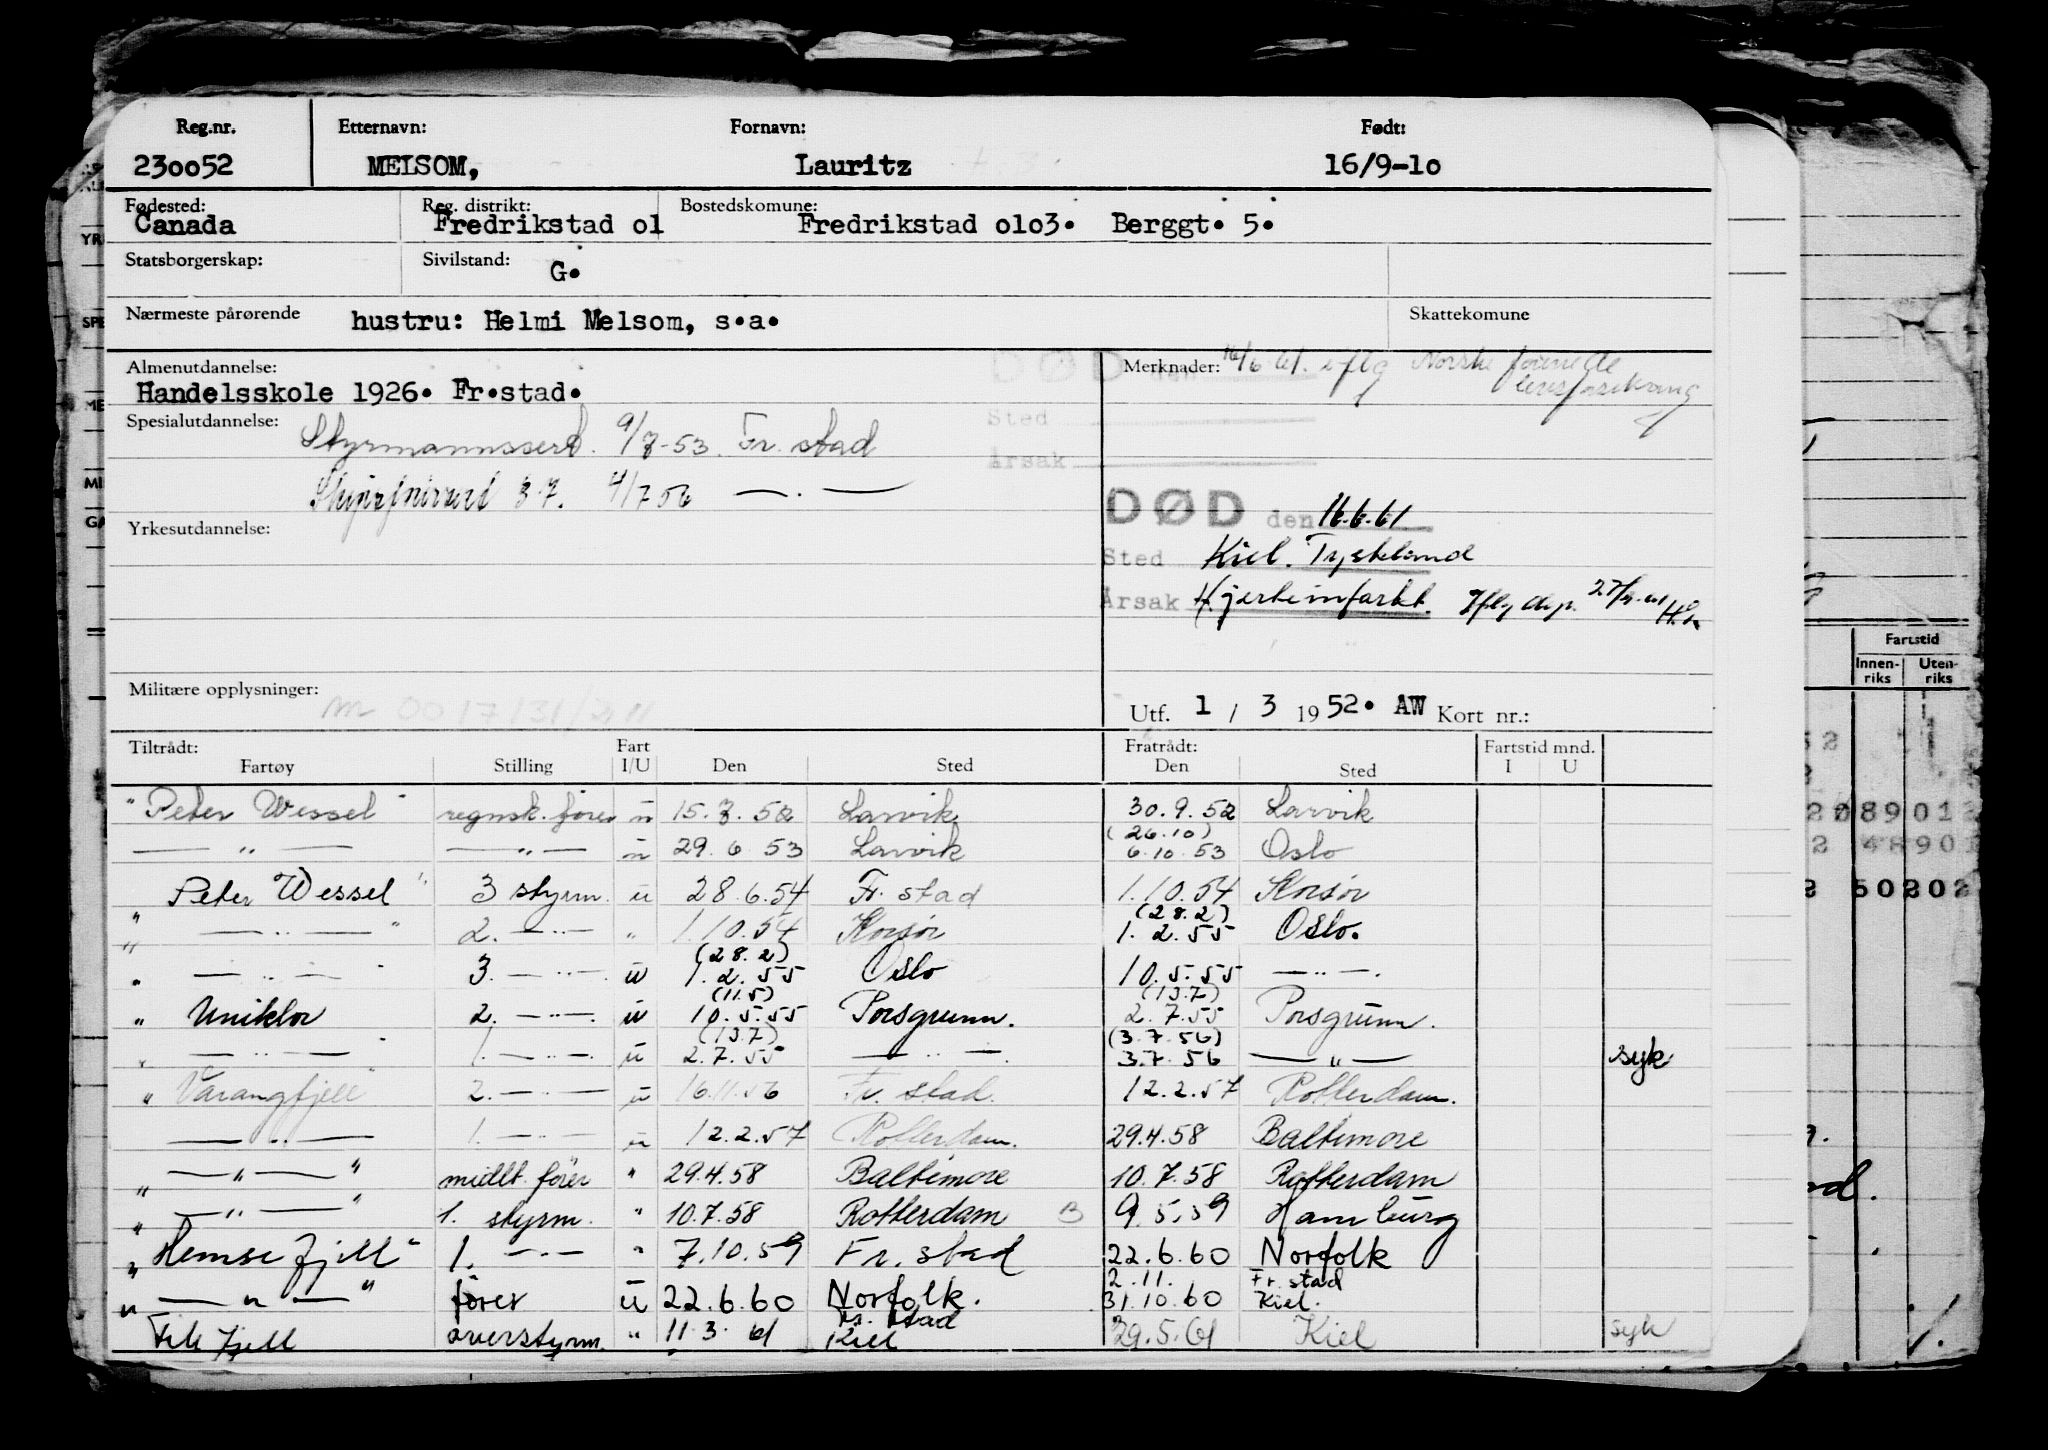 Reg.nr. Etternavn: Fornavn: Født:
230052 MELSOM, Lauritz 16/9-10
Fødested: Reg. distrikt: Bostedskomune:
Canada Fredrikstad 01 Fredrikstad 0103. Berggt. 5.
Statsborgerskap: Sivilstand:
G.
Nærmeste pårørende hustru: Helmi Melsom, s.a. Skattekomune
Almenutdannelse: Merknader: 16/6 61. iflg Norske forenede
livsforsikring
Handelsskole 1926. Fr.stad.
DØD den
Sted
Årsak
Spesialutdannelse:
Styrmannssert. 9/7-53. Fr. stad
4/7 56 — . —
DØD den 16.6.61
Yrkesutdannelse:
Sted Kiel. Tyskland
Årsak Hjerteinfarkt. Iflg
Militære opplysninger:
Utf. 1 / 3 1952. AW Kort nr.:
Tiltrådt: Fart Fratrådt: Fartstid mnd.
Fartøy Stilling I/U Den Sted Den Sted I U
"Peter Wessel" regnsk. fører u 15.7.52 Larvik 30.9.52 Larvik
(26.10)
— " — — " — u 29.6 53 Larvik 6.10.53 Oslo
"Peter Wessel" 3 styrm. u 28.6.54 Fr. stad 1.10.54 Korsør
(28.2)
" — " — " 2. — " — " 1.10.54 Korsør 1.2.55 Oslo.
(28.2)
" — " — " 3. — " — u 1.2.55 Oslo 10.5.55 — " —.
(11.5) (13.7)
" Uniklor 2. — " — u 10.5.55 Porsgrunn. 2.7.55 Porsgrunn.
(13.7) (3.7.56)
" — " — " 1. — " — u 2.7.55 — " — 3.7.56 — " — syk
" Varangfjell" 2. — " — u 16.11.56 Fr. stad. 12.2.57 Rotterdam.
— " — 1. — " — u 12.2.57 Rotterdam. 29.4.58 Baltimore
" — " — " midlt. fører " 29.4.58 Baltimore 10.7.58 Rotterdam
" — " — " 1. styrm. " 10.7.58 Rotterdam B 9.5.59 Hamburg
" Hemsefjell" 1. — " — " 7.10.59 Fr. stad 22.6.60 Norfolk
2.11. Fr. stad
" — " — " fører u 22.6.60 Norfolk. 31.10.60 Kiel.
Fr. stad
overstyrm. " 11.3.61 Kiel 29.5.61 Kiel syk
Fartstid
Innen-riks Uten-riks